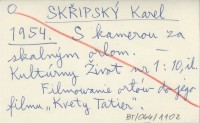 O
SKŘIPSKÝ Karel
1954. S kamerou za
skalným orlom. —
Kultúrny Život nr 1:10, il.
Filmovanie orlov do jeho
filmu „Kvety Tatier".
BT/044/1102